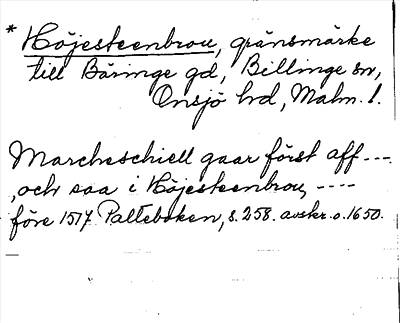 * Höjesteenbrou, gränsmärke
till Bäringe gd, Billinge sn,
Onsjö hd, Malm. l.
Marcheschiell gaar först aff ---
, och saa i Höjesteenbrou, ----
före 1517 Palteboken, s. 258. avskr. o. 1650.